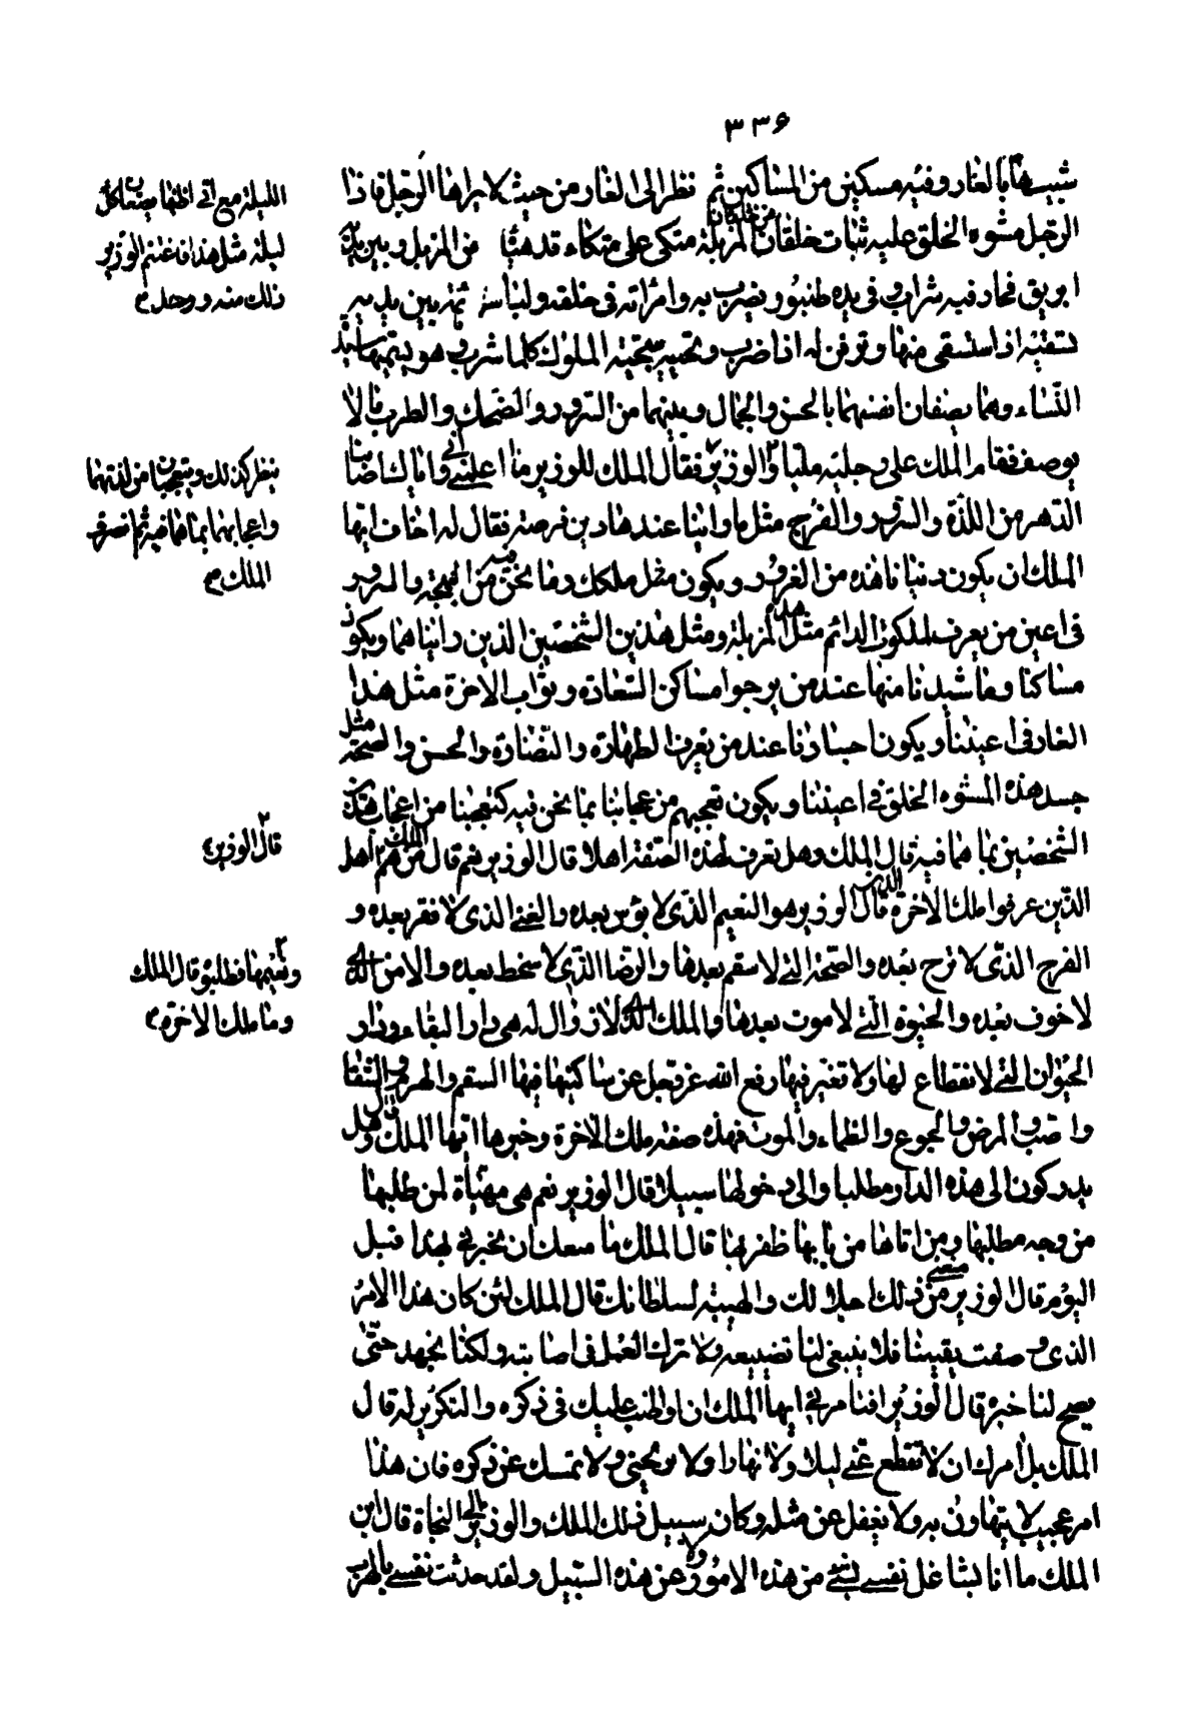 ٣٣۶
شبيها بالغار وفيه مسكين من المساكين ثم نظر الى الغار من حيث لا يراها الرجل فاذا
الرجل مشوه الخلق عليه ثياب خلقان من خلقان المزبلة متكى على متكاء قد هيئا من المزبل وبين يديه
ابريق فخار فيه شراب وفى يده طنبور يضرب به وامراته فى خلقه ولباسه قائمة بين يديه
تسقيه اذا استسقى منها وترقص له اذا ضرب وتحييه بتحية الملوك كلما شرب وهو يسميها سيدة
النساء وهما يصفان انفسهما بالحسن والجمال وبينهما من السرور والضحك والطرب ما لا
يوصف فقام الملك على رجليه مليا والوزير فقال الملك للوزير ما اعلمنى انى واياك اصابنا
الدهر من اللذة والسرور والفرح مثل ما راينا عند هاذين فرصته فقال له اخاف ايها
الملك ان يكون دنيانا هذه من الغرور ويكون مثل ملكك وما نحن فيه من البهجة والسرور
فى اعين من يعرف الملكوت الدائم مثل هذه المزبلة ومثل هذين الشخصين الذين رايناهما ويكون
مساكننا وما شيدنا منها عند من يرجوا مساكن السعادة وثواب الاخرة مثل هذا
الغار فى اعيننا ويكون اجسادنا عند من يعرف الطهارة والنضارة والحسن والصحة مثل
جسد هذه المشوه الخلق فى اعيننا ويكون تعجبهم من عجابنا بما نحن فيه كتعجبنا من اعجاب هذين
الشخصين بما هما فيه قال الملك وهل تعرف لهذه الصفة اهلا قال الوزير نعم قال الملك من هم اهل
الذين عرفوا ملك الاخرة قال الوزير هو النعيم الذى لا بؤس بعده والغنى الذى لا فقر بعده و
الفرح الذى لا ترح بعده والصحة التى لا سقم بعدها والرضا الذى لا سخط بعده والامن الذى
لا خوف بعده والحيوة التى لا موت بعدها والملك الذى لا زوال له هى دار البقاء ودار
الحيوان التى لا انقطاع لها ولا تغير فيها رفع الله عز وجل عن ساكنيها فيها السقم والهرم والشقا
والنصب والمرض والجوع والظماء والموت فهذه صفة ملك الاخرة وخبرها ايها الملك قال وهل
يدركون الى هذه الدار مطلبا والى دخولها سبيلا قال الوزير نعم هى مهيأة لمن طلبها
من وجه مطلبها ومن اتاها من بابها ظفر بها قال الملك ما منعك ان تخبرنى بهذا قبل
اليوم قال الوزير منعنى من ذلك اجلالك والهيبة لسلطانك قال الملك لئن كان هذا الامر
الذى وصفت يقينا فلا ينبغى لنا تضييعه ولا ترك العمل فى اصابته ولكنا نجهد حتى
يصح لنا خبره قال الوزير افتامرنى ايها الملك ان اواظب عليك فى ذكره والتكرير له قال
الملك بل امرك ان لا تقطع عنى ليلا ولا نهارا ولا تريحنى ولا تمسك عن ذكره فان هذا
امر عجيب لا يتهاون به ولا يغفل عن مثله وكان سبيل ذلك الملك والوزير الى النجاة قال ابن
الملك ما انا بشاغل نفسى بشئ من هذه الامور عن هذه السبيل ولقد حدثت نفسى بالهرب
الليلة مع انى اظنهما يصنعان كل
ليلة مثل هذا فاغتنم الوزير
ذلك منه ووجد م
ينظر كذلك ويتعجبان من لذتهما
واعجابهما بما هما فيه ثم انصرف
الملك م
قال الوزير ٤
ونعيمها فطلبوه قال الملك
وما ملك الاخرة م